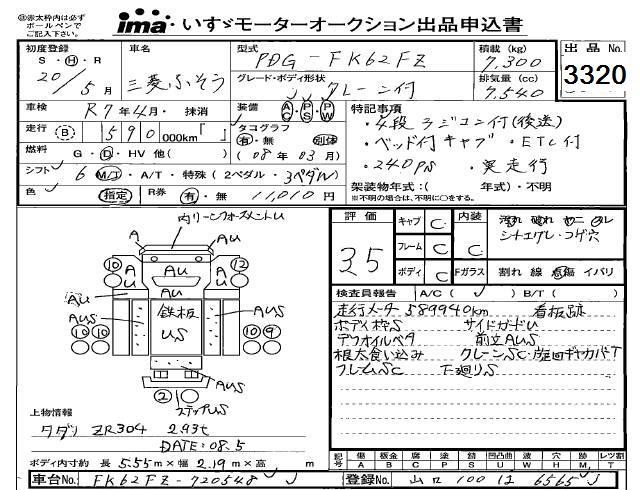 ㊟赤太枠内は必ず
ボールペンで
ご記入下さい。
ima いすゞモーターオークション出品申込書
初度登録 S・H・R 20/5月
車名 三菱ふそう
型式 PDG-FK62FZ
グレード・ボディ形状 クレーン付
積載 (kg) 7,300
排気量 (cc) 7,540
出品No. 3320
車検 R7年4月・抹消
装備 AC・PS・PW
走行 (B) 590 000km「 」
タコグラフ 有・無 別体
(08年03月)
燃料 G・D・HV 他( )
シフト 6 M/T・A/T・特殊(2ペダル・3ペダル)
色 (指定) R券 有・無 11,010円
特記事項
・4段ラジコン付(後送)
・ベッド付キャブ・ETC付
・240ps ・実走行
架装物年式:( 年式)・不明
※不明の場合は、不明に○をする。
評価 35
キャブ C
フレーム C
ボディ C
内装 C
Fガラス
汚れ 破れ ヤニ コレ
シートエグレ・コゲ穴
割れ 線 飛傷 イバリ
検査員報告 A/C( ✓ ) B/T( )
走行メーター589940km 看板跡
ボディ枠S サイドガードU
デフオイルベタ 前立AUS
根太食い込み クレーンSC・
フレームSC 下廻りS
内リーンフォースメントU
A AU
10 12
A AU AU A AU
AU AU
AUS 鉄板 US AUS
10 10 10 9
AUS
2
ステップUS
上物情報
タダノ ZR304 2.93t
DATE:08.5
ボディ内寸約 長 5.55m×幅 2.19m×高 m
記号 傷 板金 腐 塗 錆 凹凸曲 波 穴 跡 レツ割
A B C P S U W H M T
車台No. FK62FZ-720548
登録No. 山口 100 は 6565